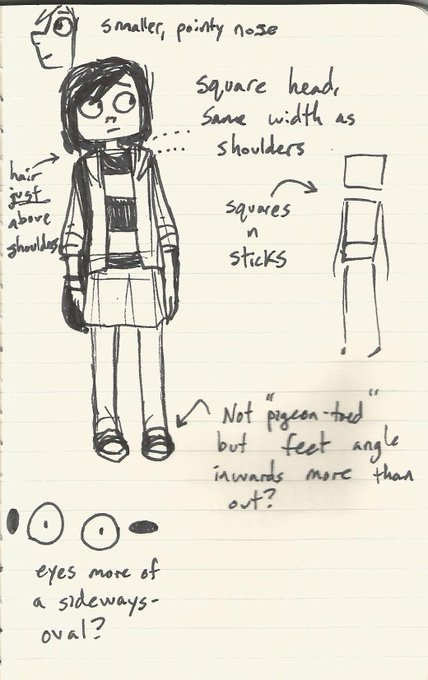 smaller, pointy nose
square head,
same width as
shoulders
hair
just
above
shoulders
squares
n
sticks
Not "pigeon-toed"
but feet angle
inwards more than
out?
eyes more of
a sideways-
oval?